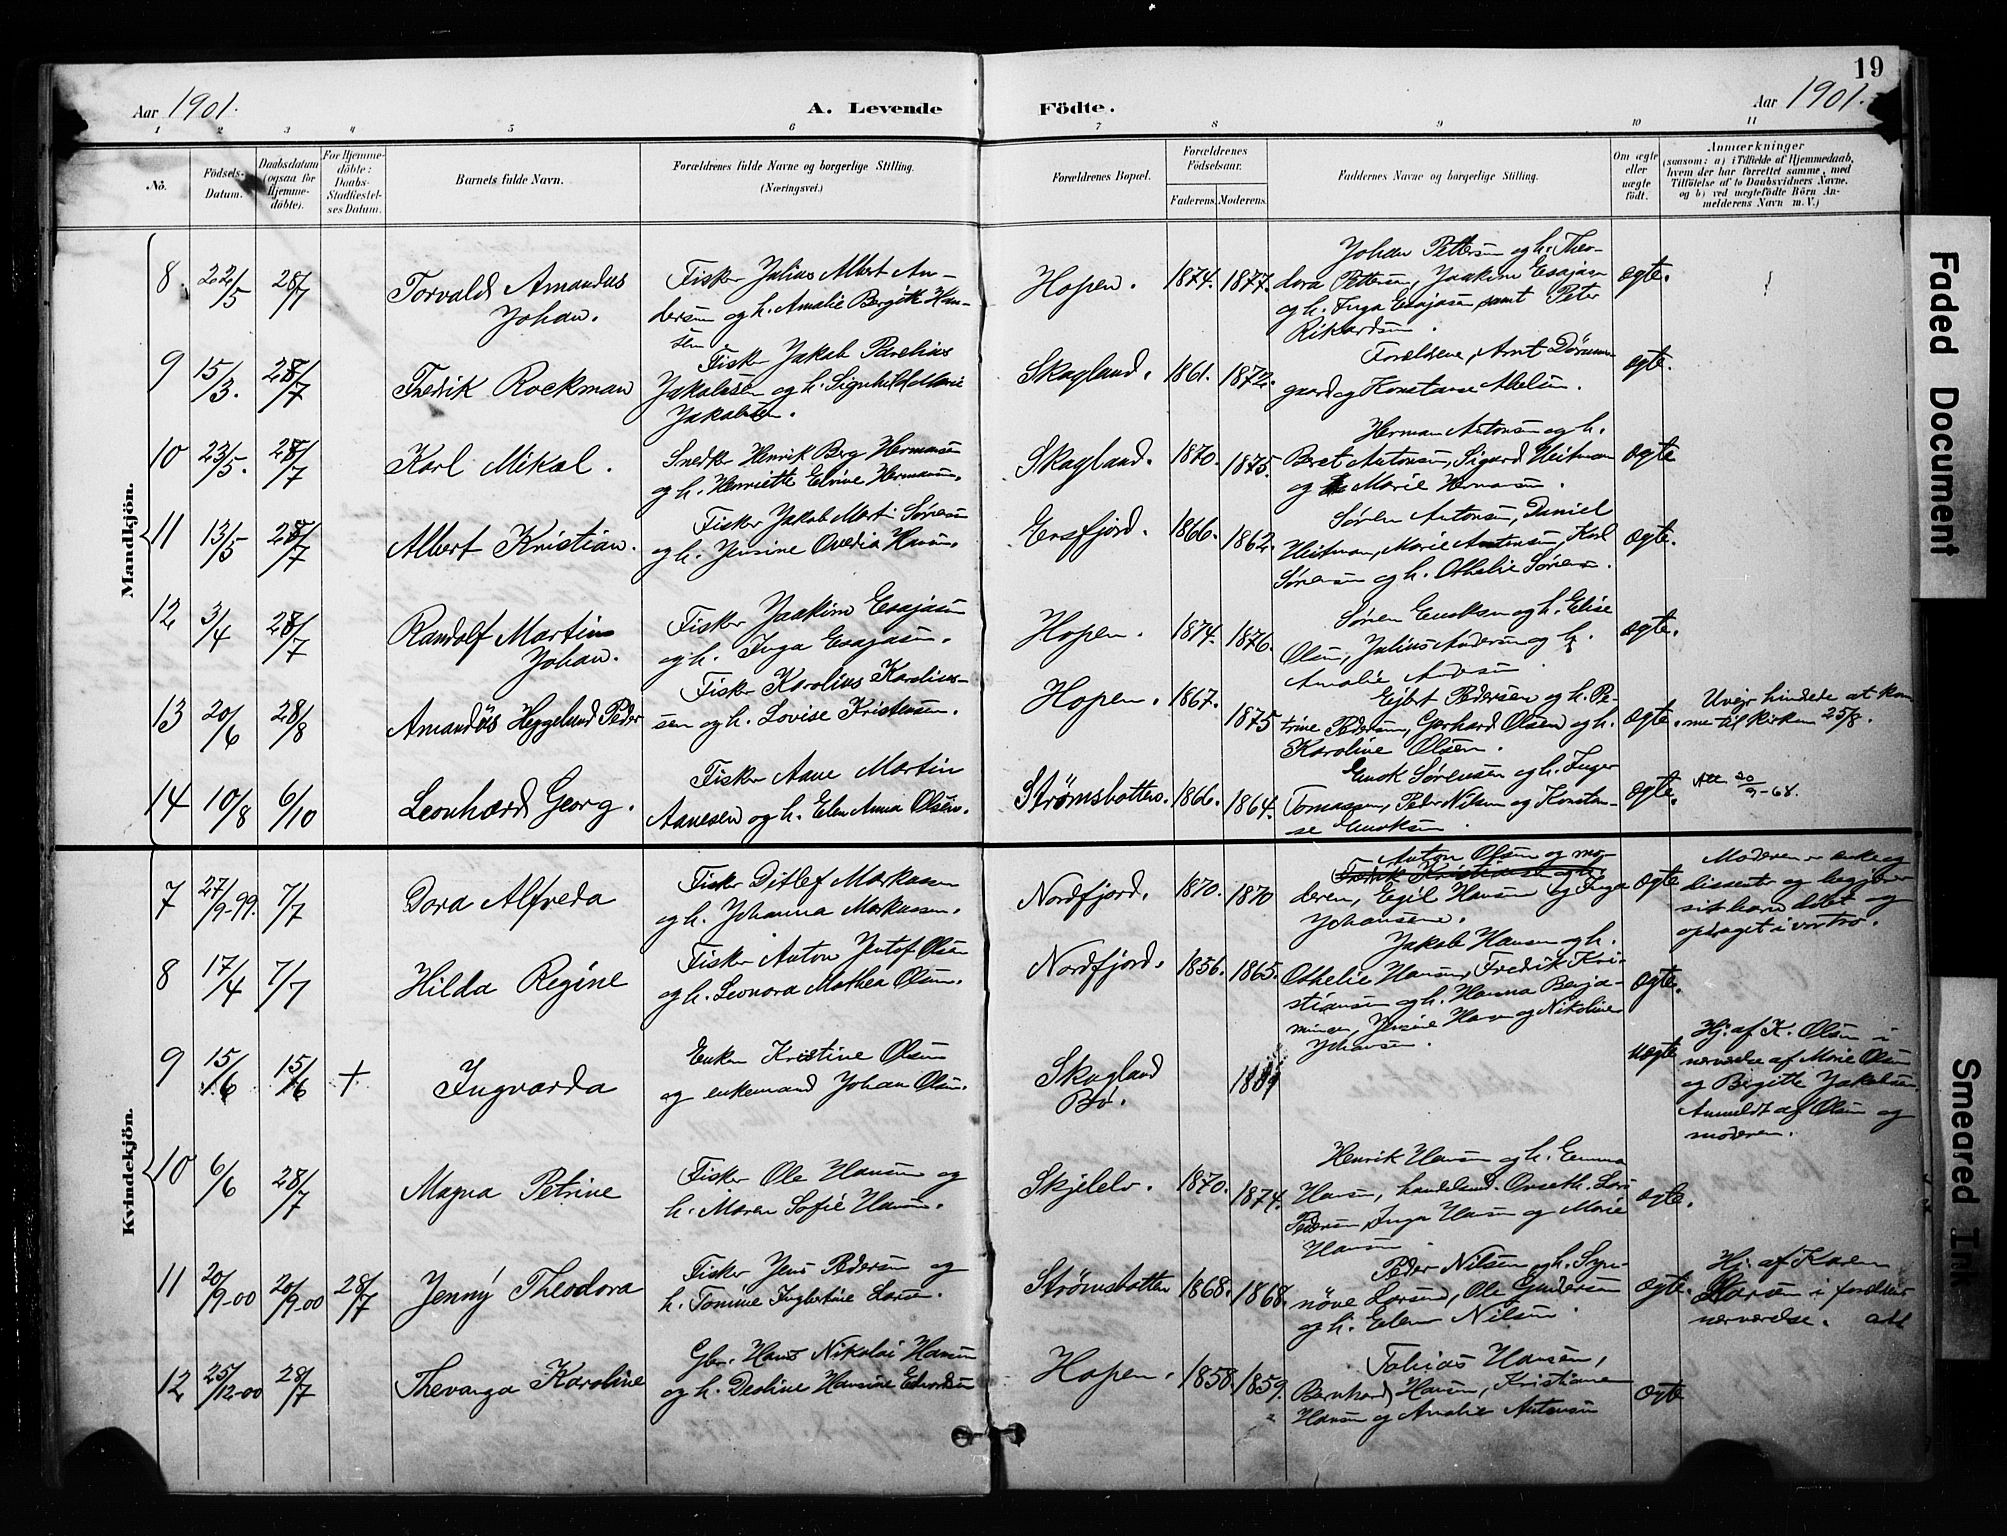 19
Aar 1901. A. Levende Födte. Aar 1901.
1 2 3 4 5 6 7 8 9 10 11
No. Födsels-Datum. Daabsdatum (ogsaa for Hjemme-döbte). For Hjemme-döbte: Daabs-Stadfæstel-ses Datum. Barnets fulde Navn. Forældrenes fulde Navne og borgerlige Stilling. (Næringsvei.) Forældrenes Bopæl. Forældrenes Födselsaar. Faderens. Moderens. Faddernes Navne og borgerlige Stilling. Om ægte eller uægte födt. Anmærkninger (saasom: a) i Tilfælde af Hjemmedaab, hvem der har forrettet samme, med Tilföielse af to Daabsvidners Navne, og b) ved uægtefödte Börn An-melderens Navn m. V.)
Mandkjön.
8 22/5 28/7 Torvald Amandus Johan. Fisker Julius Albert An-dersen og h. Amalie Bergitte Han-sen Hopen. 1874. 1877. Johan Pettersen og h. Theo-dora Pettersen, Joakim Esajasen og h. Inga Esajasen, samt Peter Rikardsen. ægte.
9 15/3. 28/7 Fredrik Rockman Fisker Jakob Parelius Jakobsen og h. Signhild Marie Jakobsen. Skagland. 1861. 1872. Forældrene, Arnt og Konstanse ægte.
10 23/5. 28/7 Karl Mikal. Snedker Henrik Berg Hermansen og h. Henriette Elvine Hermansen. Skagland. 1870. 1875. Herman Antonsen og h. Beret Antonsen, Sigurd Heitman og Marie Hermansen. ægte
11 13/5 28/7 Albert Kristian. Fisker Jakob Martin Sørensen og h. Jensine Ovedia Hansen. Ersfjord. 1866. 1862. Søren Antonsen, Daniel Heitman, Marie Antonsen, Karl Sørensen og h. Othelie Sørensen. ægte.
12 3/4 28/7 Randolf Martin Johan. Fisker Joakim Esajasen og h. Inga Esajasen. Hopen. 1874. 1876. Søren Enoksen og h. Elise Olsen, Julius Andersen og h. Amalie Andersen ægte.
13 20/6 28/8 Amandus Heggelund Peder Fisker Karolius Karolius-sen og h. Lovise Kristensen. Hopen. 1867. 1875 Ejbert Pedersen og h. Pe-trine Pedersen, Gerhard Olsen og h. Karoline Olsen. ægte. Uvejr hindrede at kom-me til kirken 25/8.
14 10/8 6/10 Leonhard Georg. Fisker Aane Martin Aanesen og h. Elen Anna Olsen. Strømsbotten. 1866. 1864. Enok Sørensen og h. Inger Tomassen, Peder Nilsen og Konstan-se Enoksen. ægte. Att 20/9-68.
Kvindekjön.
7 27/9-99. 7/7 Dora Alfreda Fisker Ditlef Markussen og h. Johanna Markussen. Nordfjord. 1870. 1870 Anton Olsen og mo-deren, Egil Hansen og Inga Johansen. ægte Moderen er enke og dissenter og begjærer sit barn døbt og opdraget i vor tro.
8 17/4 7/7 Hilda Regine Fisker Anton Olsen og h. Leonora Mathea Olsen. Nordfjord. 1856. 1865. Jakob Hansen og h. Othelie Hansen, Fredrik Kri-stiansen og h. Hanna Benja-minsen, Jensine Hansen og Nikoline Johansen. ægte.
9 15/6 15/6 + Ingvarda Enken Kristine Olsen og enkemand Johan Olsen. Skagland Bø. Uægte Hj. af K. Olsen i nærværelse af Marie Olsen og Birgitte Jakobsen Anmeldt af Olsen og moderen.
10 6/6 28/7 Magna Petrine Fisker Ole Hansen og h. Maren Sofie Hansen. Skjelelv. 1870. 1874. Henrik Hansen og h. Emma Hansen, handelsmd. Pedersen, Inga Hansen og Marie Hansen ægte.
11 20/9-00 20/9.00 28/7 Jenny Theodora Fisker Jens Pedersen og h. Tomine Ingbertine Larsen. Strømsbotten 1868. 1868. Peder Nilsen og h. Syn-nøve Larsen, Ole Gundersen og h. Elen Nilsen ægte. Hj. af Karen Larsen i forældres nærværelse. att
12 25/12-00 28/7 Thevanga Karoline Gbr. Hans Nikolai Hansen og h. Desline Hansine Edvardsen Hopen. 1858. 1859. Tobias Hansen, Bernhard Hansen, Kristiane Hansen og Amalie Antonsen ægte
Faded Document
Smeared Ink